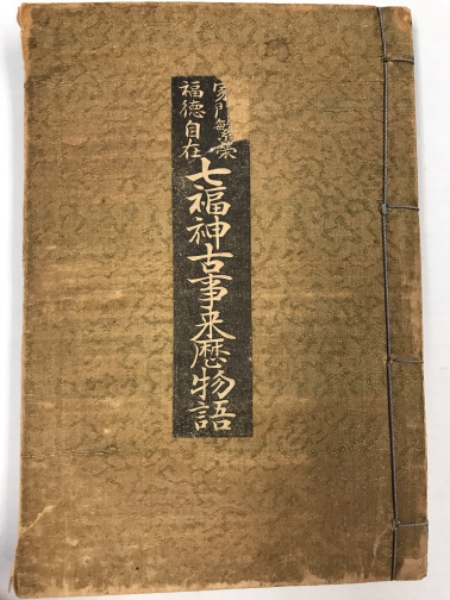 家門繁榮
福徳自在
七福神古事来歴物語